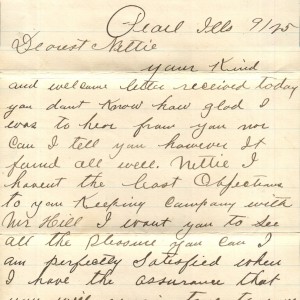 Pearl Ills 9/25
Dearest Nettie
your Kind
and welcome letter received today
you dont Know how glad I
was to hear from you nor
can I tell you however It
found all well. Nettie I
havent the least Objections
to you Keeping Company with
Mr Hill I want you to see
all the Pleasure you can I
am perfectly Satisfied when
I have the assurance that
you will